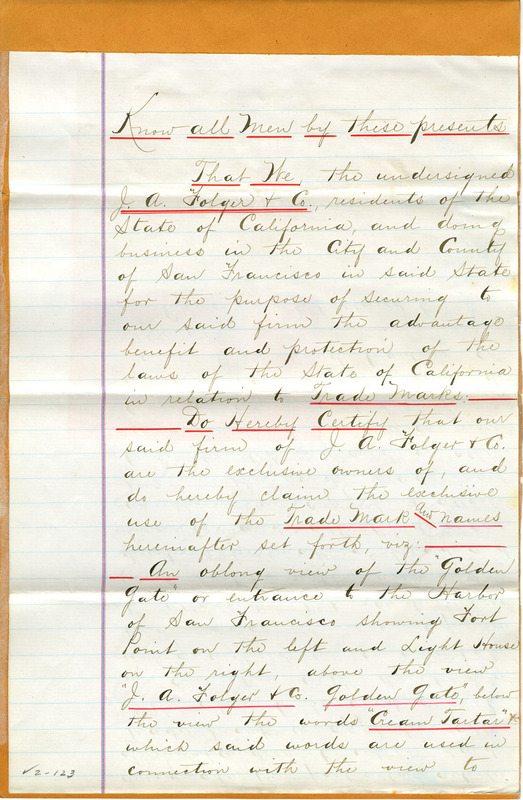 Know all Men by these presents
That We, the undersigned
J. A. Folger & Co., residents of the
State of California, and doing
business in the City and County
of San Francisco in said State
for the purpose of securing to
our said firm the advantage
benefit and protection of the
laws of the State of California
in relation to Trade Marks:
Do Hereby Certify that our
said firm of J. A. Folger & Co.
are the exclusive owners of, and
do hereby claim the exclusive
use of the Trade Mark and names
hereinafter set forth, viz:
An oblong view of the "Golden
Gate" or entrance to the Harbor
of San Francisco showing Fort
Point on the left and Light House
on the right, above the view
"J. A. Folger & Co. Golden Gate", below
the view the words "Cream Tartar"
which said words are used in
connection with the view to
2-123